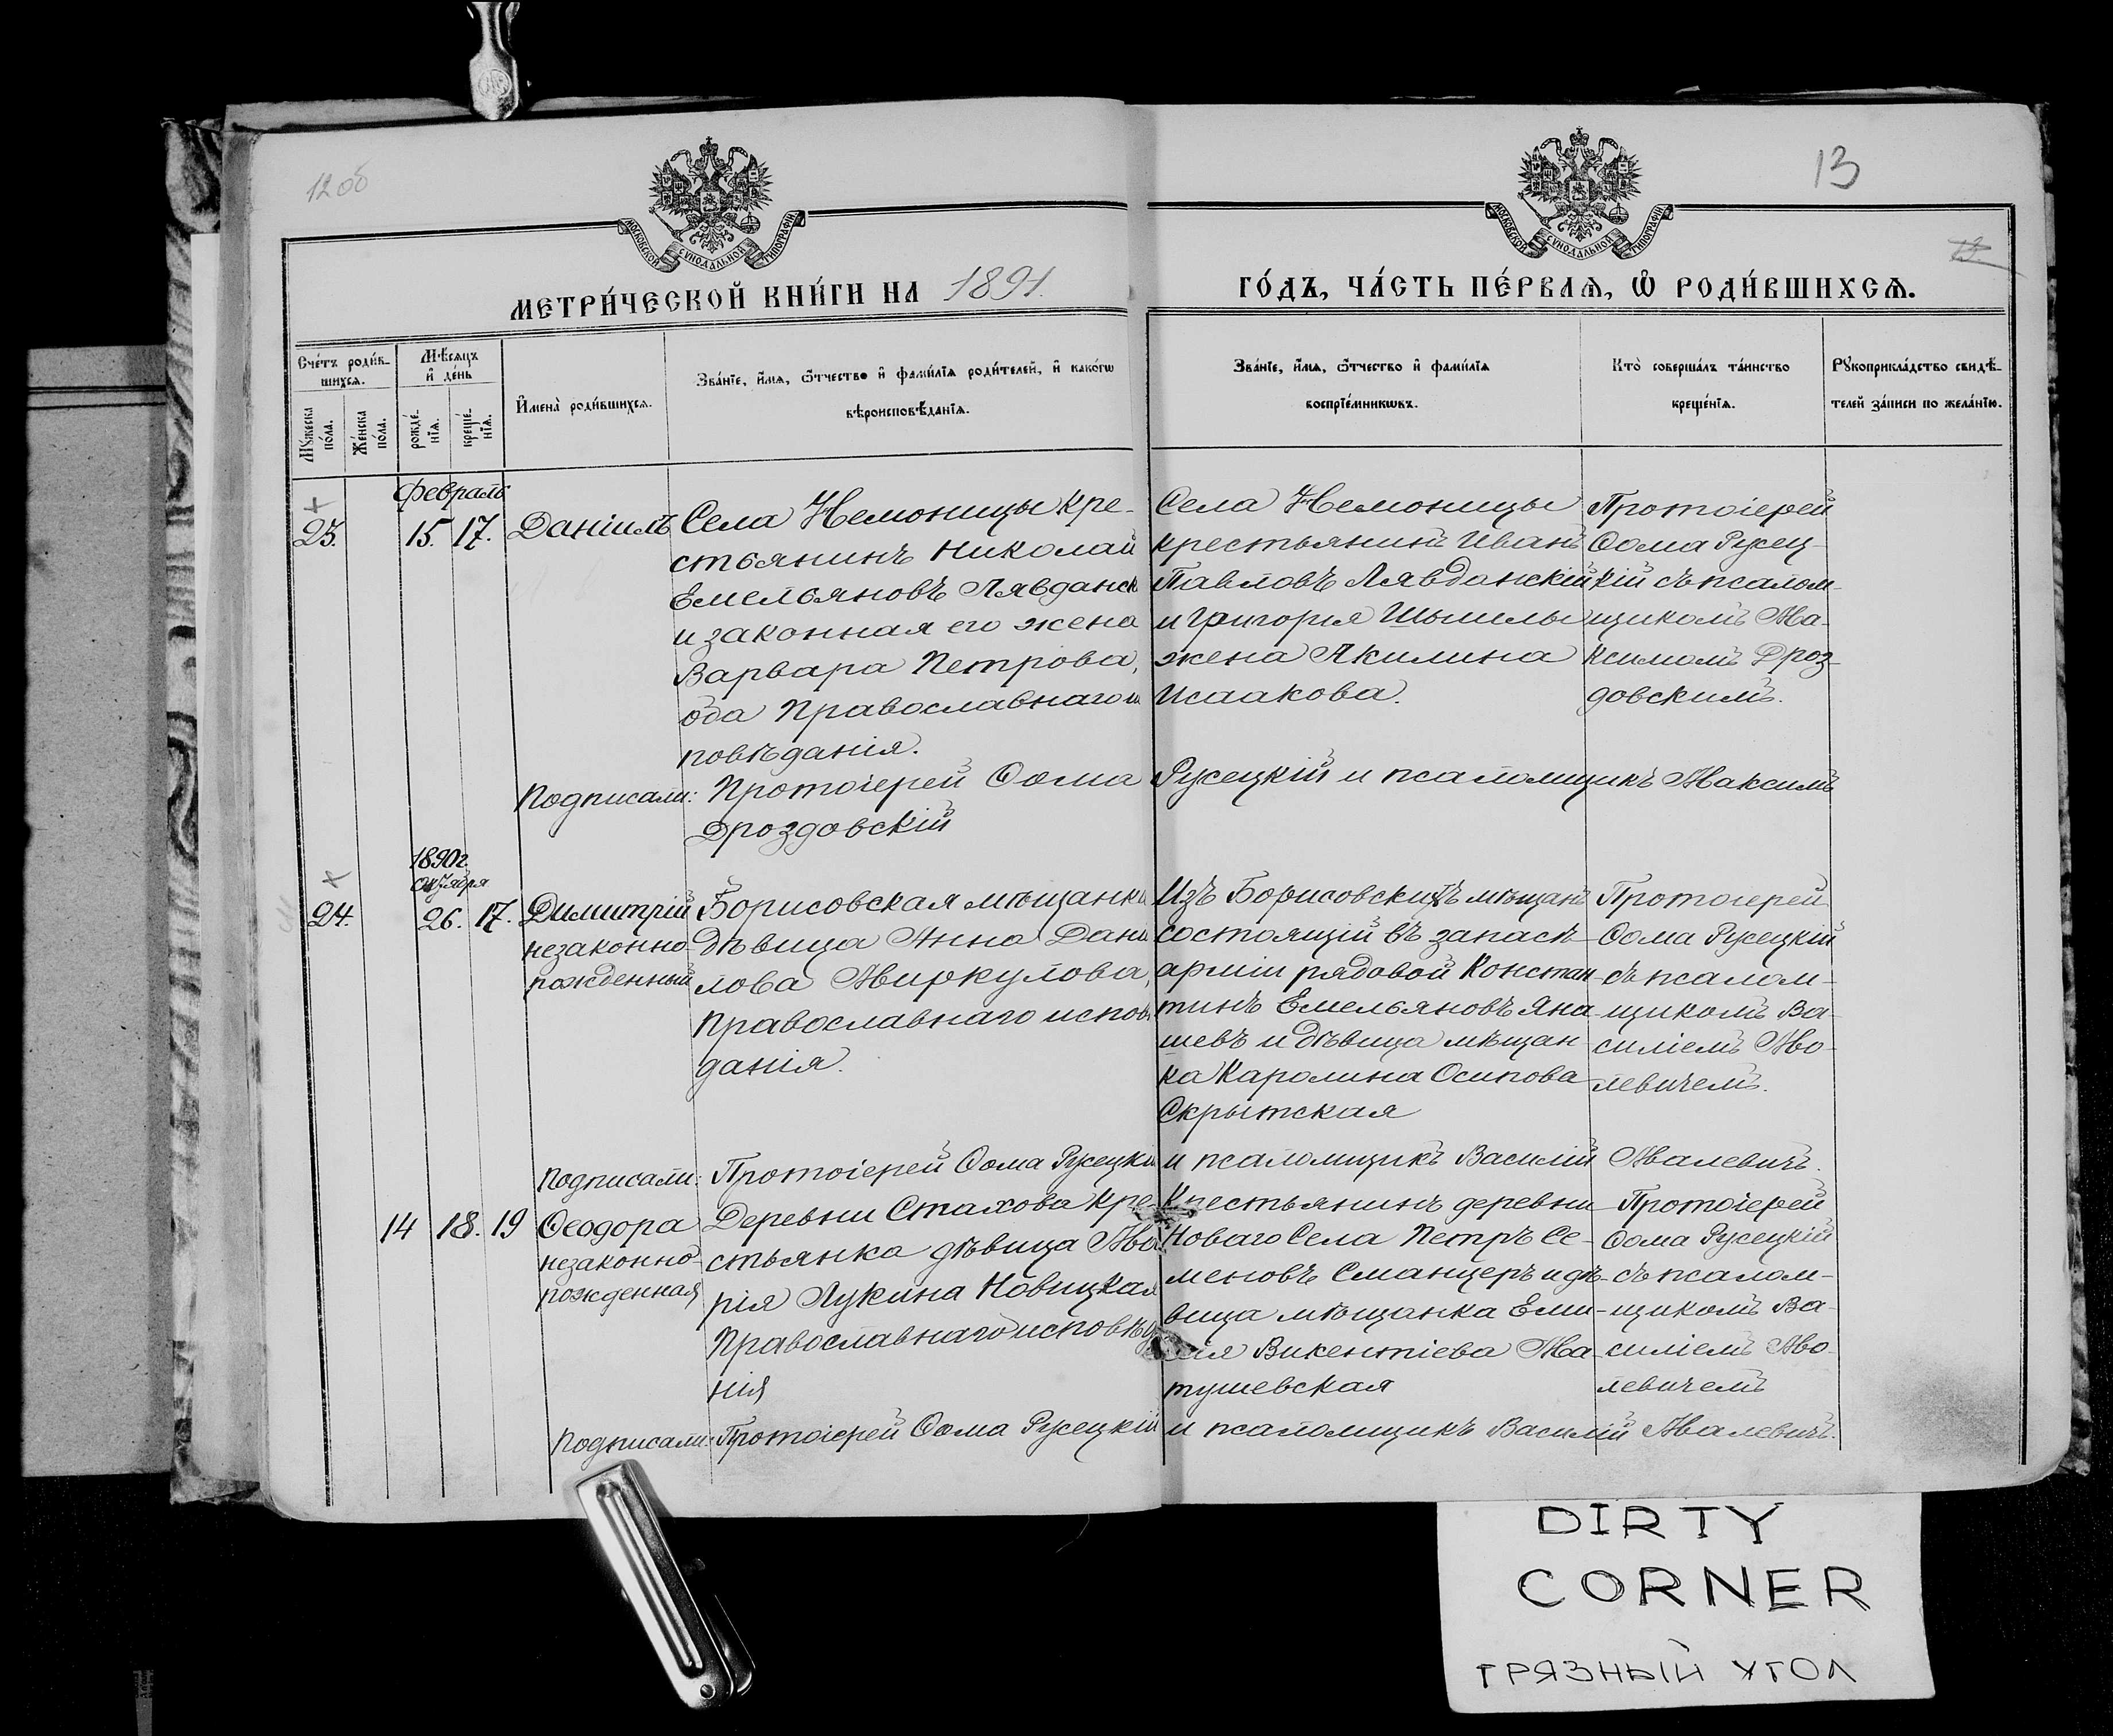 12 об
13
13
МОСКОВСКОЙ СѴНОДАЛЬНОЙ ТИПОГРАФІИ
МОСКОВСКОЙ СѴНОДАЛЬНОЙ ТИПОГРАФІИ
МЕТРИ́ЧЕСКОЙ КНИ́ГИ НА 1891.
ГО́ДЪ, ЧА́СТЬ ПЕ́РВАѦ, Ѡ҆ РОДИ́ВШИХСѦ.
Сче́тъ роди́в-
шихсѧ.
Мꙋ́жеска по́ла.
Же́нска по́ла.
Мѣ́сѧцъ
и҆ де́нь
рожде́-
нїѧ.
креще́-
нїѧ.
И҆мена̀ роди́вшихсѧ.
Зва́нїе, и҆́мѧ, ѻ҆́тчество и҆ фами́лїѧ роди́телей, и҆ како́гѡ
вѣроисповѣ́данїѧ.
Зва́нїе, и҆́мѧ, ѻ҆́тчество и҆ фами́лїѧ
воспрїе́мникѡвъ.
Кто̀ соверша́лъ та́инство
креще́нїѧ.
Рꙋкоприкла́дство свидѣ́-
телей за́писи по жела́нїю.
Февраль
23. 15. 17. Даніилъ
Села Немоницы кре-
стьянинъ Николай
Емельяновъ Лявданск
и законная его жена
Варвара Петрова,
оба Православнаго и
повѣданія.
Села Немоницы
крестьянинъ Иванъ
Павловъ Лявданскій
и Григорія Шымилы
жена Акилина
Исаакова.
Протоіерей
Ѳома Русец-
кій съ псалом-
щикомъ Ма-
ксимомъ Дроз-
довскимъ.
Подписали: Протоіерей Ѳома Русецкій и псаломщикъ Максимъ
Дроздовскій
1890 г.
Октября
24. 26. 17. Димитрій
незаконно-
рожденный
Борисовская мѣщанка
дѣвица Анна Дани
лова Миркулова,
Православнаго исповѣ
данія.
Изъ Борисовскихъ мѣщанъ
состоящій въ запасѣ
арміи рядовой Констан-
тинъ Емельяновъ Яна-
шевъ и дѣвица мѣщан
ка Каролина Осипова
Скрытская
Протоіерей
Ѳома Русецкій
съ псалом-
щикомъ Ва-
силіемъ Мо-
левичемъ.
Подписали: Протоіерей Ѳома Русецкій и псаломщикъ Василій Малевичъ.
14 18. 19 Ѳеодора
незаконно-
рожденная
Деревни Стахова кре-
стьянка дѣвица Ма
рія Лукина Новицкая
Православнаго исповѣд
нія
Крестьянинъ деревни
Новаго Села Петръ Се-
меновъ Сманцеръ и дѣ-
вица мѣщанка Еми-
лія Викентіева Ма-
тушевская
Протоіерей
Ѳома Русецкій
съ псалом-
щикомъ Ва-
силіемъ Мо-
левичемъ
Подписали: Протоіерей Ѳома Русецкій и псаломщикъ Василій Малевичъ.
DIRTY
CORNER
ГРЯЗНЫЙ УГОЛ